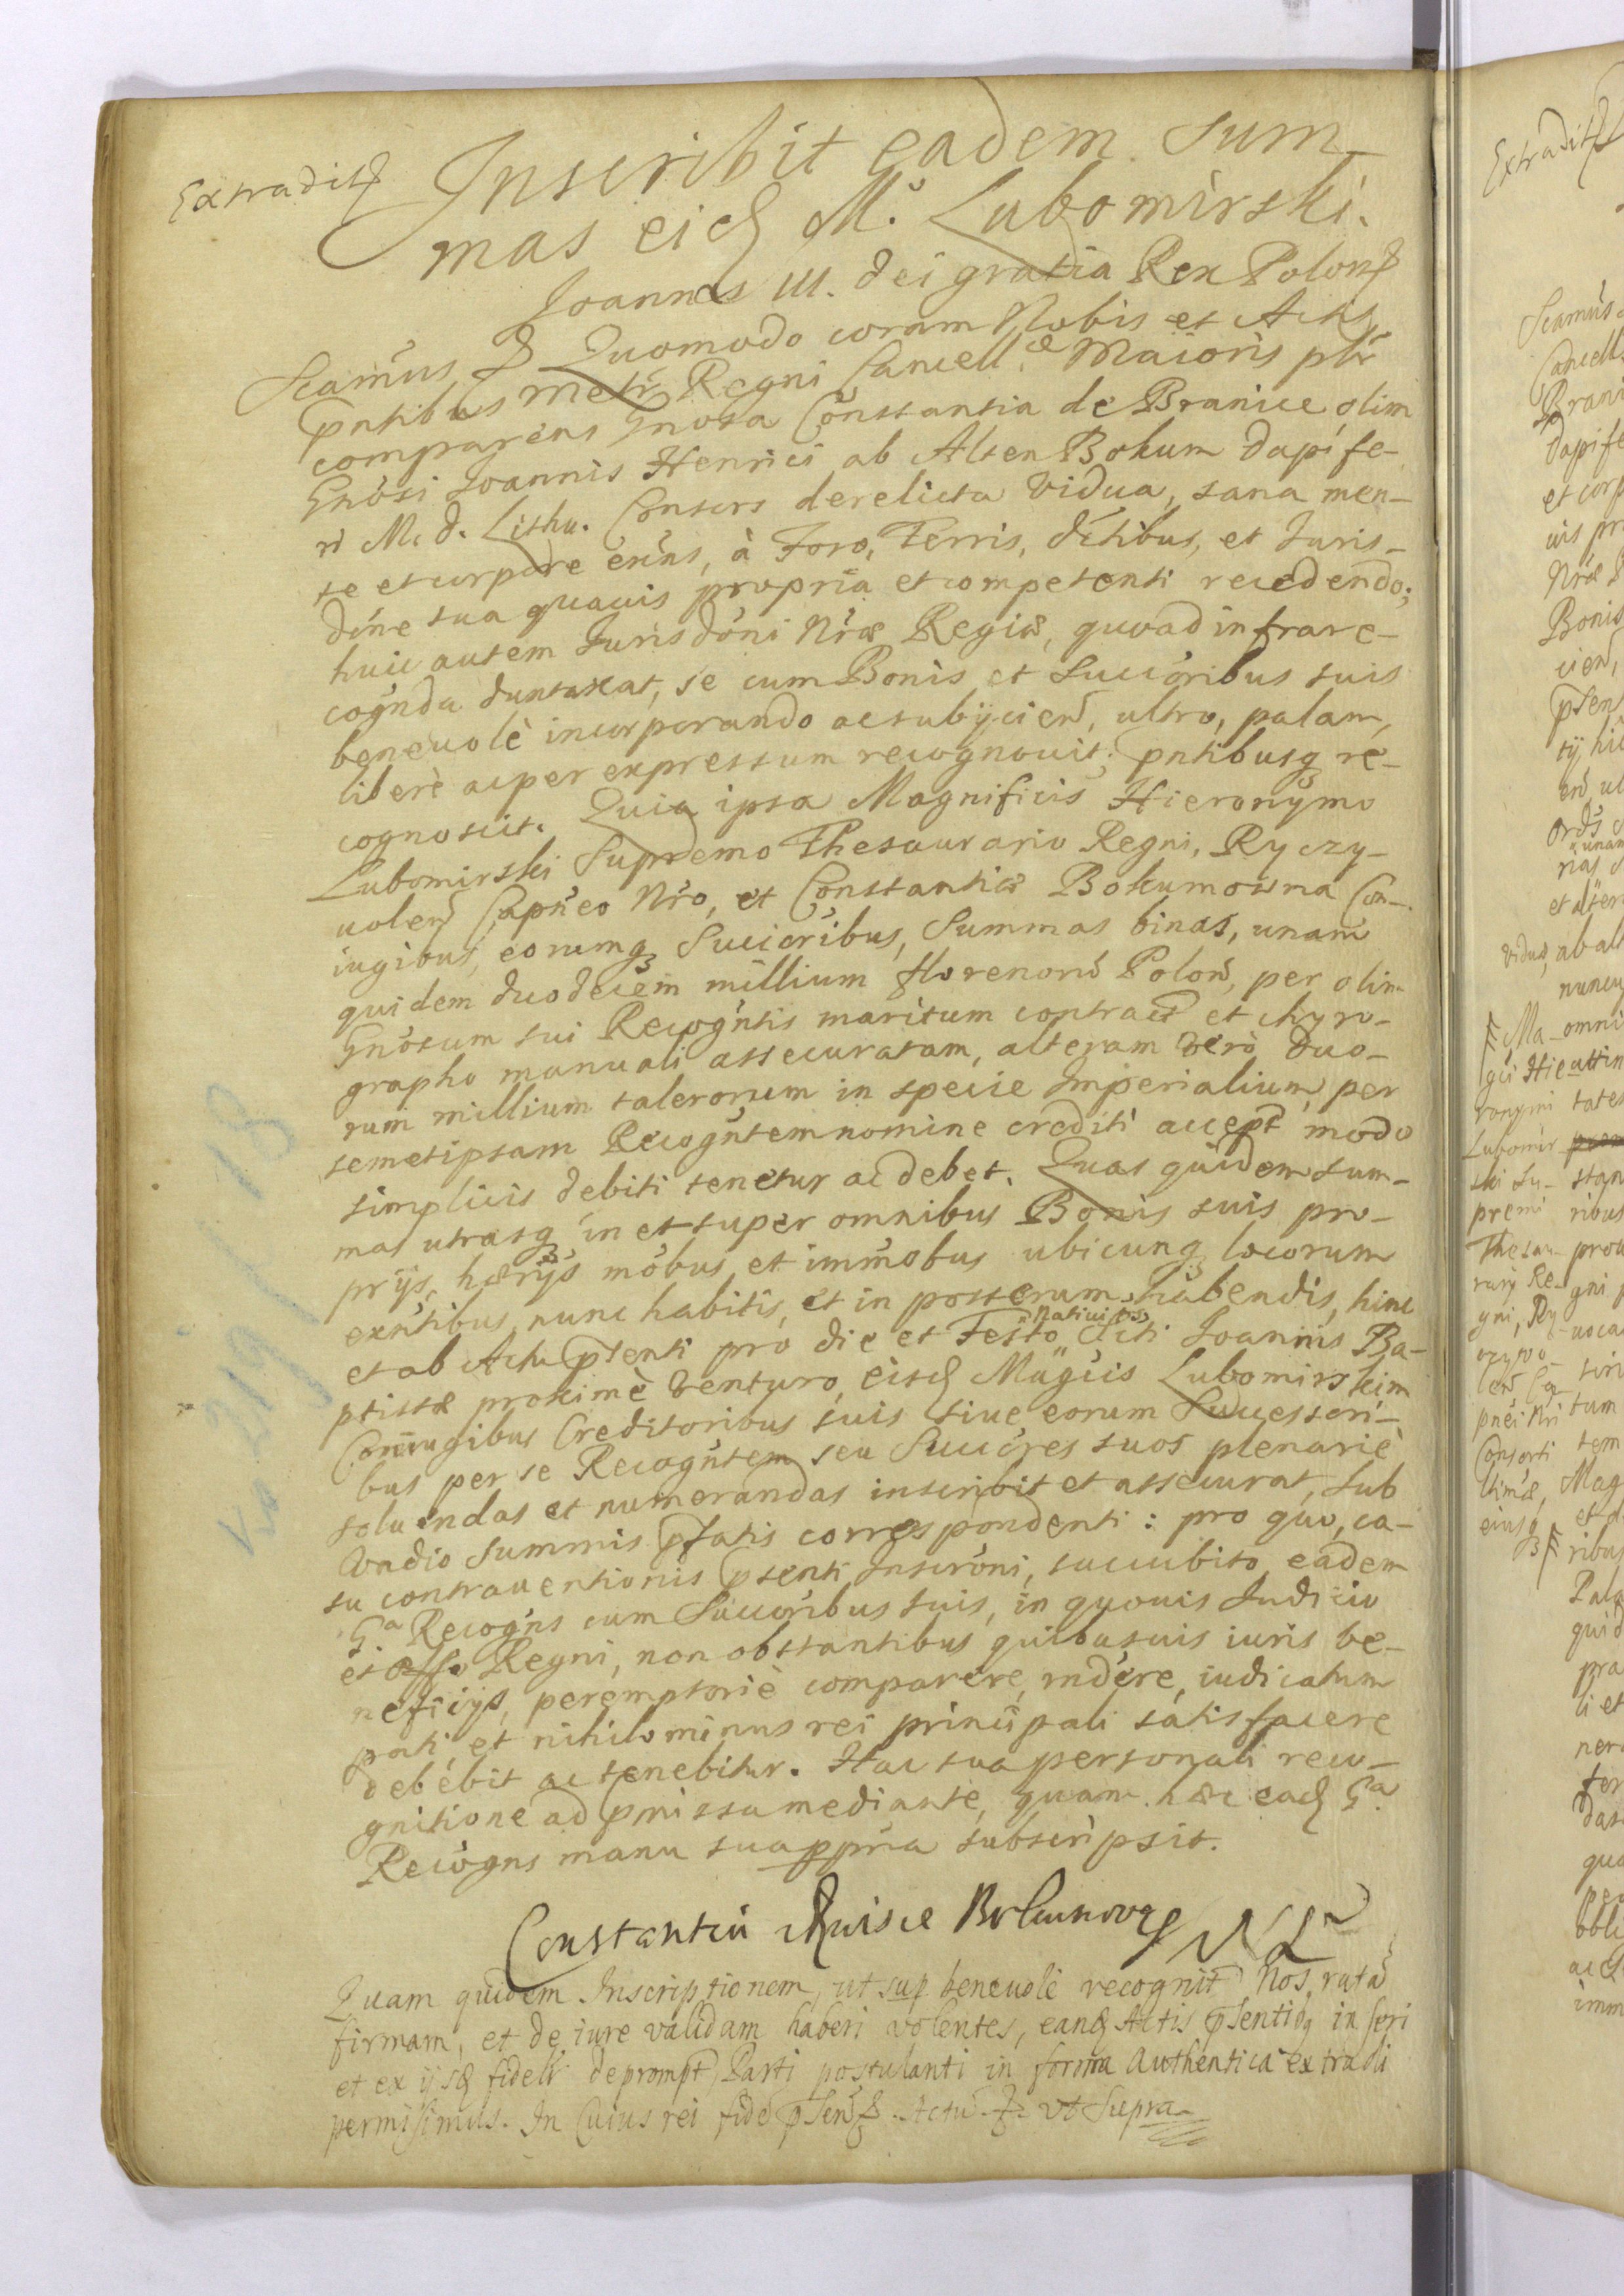 Extradit
Inscribit eadem Sum-
mas eid M. Lubomirski.
Joannes III. dei gratia Rex Polon
Scamus & Quomodo coram Nobis et Actis
pntibus Metr Regni Cancell. Maioris pltr
comparens Gnosa Constantia de Branice, olim
Gnosi Joannis Henrici ab Alten Bokum Dapife-
ri M. d. Lithu. Consors derelicta Vidua, sana men-
te et corpore exns, à Foro, Terris, dctibus, et Juris-
dine sua quavis propria et competenti recedendo;
huic autem Jurisdoni Nrae Regiae, quoad infrare-
cognda duntaxat, se cum Bonis et Succoribus suis
beneuolè incorporando ac subijcien, ultro, palam,
liberè ac per expressum recognouit: pntibusq re-
cognoscit. Quia ipsa Magnificis Hieronymo
Lubomirski Supremo Thesaurario Regni, Ryczy-
uolen Capneo Nro, et Constantiae Bokumowna Con-
iugibus, eorumq Succoribus, Summas binas, unam
quidem duodecem millium florenoru Polon, per olim
Gnosum sui Recogntis maritum contract et chyro-
grapho manuali assecuratam, alteram verò duo-
rum millium talerorum in specie Imperialium, per
semetipsam Recogntem nomine crediti accept modo
simplicis debiti tenetur ac debet. Quas quidem sum-
mas utrasq in et super omnibus Bonis suis pro-
prijs, haerijs mobus et immobus ubicunq locorum
exntibus, nunc habitis, et in posterum habendis, hinc
et ab Actu psenti pro die et Festo Natiuitis Scti Joannis Ba-
ptistae proximè venturo, eisd Mägcis Lubomirskim
Coniugibus Creditoribus suis siue eorum Successori-
bus per se Recogntem seu Succores suos plenariè
soluendas et numerandas inscribit et assecurat, sub
Vadio summis pfatis correspondenti: pro quo, ca-
su contrauentionis psenti Inscroni, succubito, eadem
Ga Recogns cum Succoribus suis, in quouis Judicio
et Offo Regni, non obstantibus quibusuis iuris be-
neficijs, peremptoriè comparere, rndere, iudicatum
pati, et nihilominus rei principali satisfacere
debebit ac tenebitur. Hac sua personali reco-
gnitione ad pmissa mediante, quam haec ead Ga
Recogns manu sua ppria subscripsit.
Constantia
Quam quidem Inscriptionem, ut sup beneuolè recognit Nos, ratã
firmam, et de iure validam haberi volentes, eand Actis psentib inseri
et ex ijsd fideli deprompt, Parti postulanti in forma Authentica extradi
permisimus. In Cuius rei fide psen & Actu & vt Supra
Extradit
Scamus
Cancell
Dapife
et corp
uis pr
Nrae
Bonis
cien,
psen
tij hi
en ul
unam
rias
et alter
vidua, ab al
nuncu
Ma- omni
gci Hie attin
ronymi tates
Lubomir-
ski Su- stan
premi ribus
Thesau- prou
rarij Re- gni
gni, Ry- uoca
czywo- siri
len Ca- tum
pnei Nri tem
Consorti Mag
ltimae, et
eiusq ribus
Pala
quid
pra
li et
nera
ter
das
qua
pe
obli
ac
imm